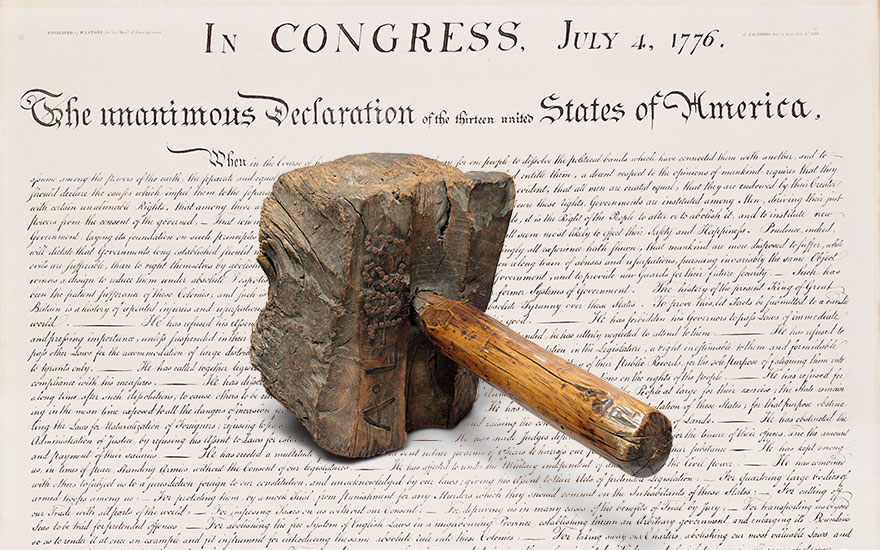 IN CONGRESS, JULY 4, 1776.
The unanimous Declaration of the thirteen united States of America,
When in the Course of for one people to dissolve the political bands which have connected them with another, and to
assume among the powers of the earth, the separate and equal entitle them, a decent respect to the opinions of mankind requires that they
should declare the causes which impel them to the separa evident, that all men are created equal, that they are endowed by their Creator
with certain unalienable Rights, that among these secure these rights, Governments are instituted among Men, deriving their just
powers from the consent of the governed, — That when s, it is the Right of the People to alter or to abolish it, and to institute new
Government, laying its foundation on such principles all seem most likely to effect their Safety and Happiness. Prudence, indeed,
will dictate that Governments long established should ingly all experience hath shewn, that mankind are more disposed to suffer, while
evils are sufferable, than to right themselves by abolish a long train of abuses and usurpations, pursuing invariably the same Object
evinces a design to reduce them under absolute Despotis Government, and to provide new Guards for their future security. — Such has
been the patient sufferance of these Colonies; and such is former Systems of Government. The history of the present King of Great
Britain is a history of repeated injuries and usurpations absolute Tyranny over these States. To prove this, let Facts be submitted to a candid
world. He has refused his Assent good. He has forbidden his Governors to pass Laws of immediate
and pressing importance, unless suspended in their nded, he has utterly neglected to attend to them. He has refused to
pass other Laws for the accommodation of large district tation in the Legislature, a right inestimable to them and formidable
to tyrants only. He has called together legisla of their Public Records, for the sole purpose of fatiguing them into
compliance with his measures. He has dissol ns on the rights of the people. He has refused for
a long time, after such dissolutions, to cause others to be People at large for their exercise; the State remain
ing in the mean time exposed to all the dangers of invasion f population of these States; for that purpose obstruc
ting the Laws for Naturalization of Foreigners; refusing to p and raising the cond Lands. He has obstructed the
Administration of Justice, by refusing his Assent to Laws for He has made Judges depen for the tenure of their offices, and the amount
and payment of their salaries. He has erected a multitude of Officers to harrass our p their substance. He has kept among
us, in times of peace, Standing Armies without the Consent of our legislatures. He has affected to render the Military independent of a the Civil power. He has combined
with others to subject us to a jurisdiction foreign to our constitution, and unacknowledged by our laws; giving his Assent to their Acts of pretended Legislation: For Quartering large bodies of
armed troops among us: For protecting them, by a mock Trial, from punishment for any Murders which they should commit on the Inhabitants of these States: For cutting off
our Trade with all parts of the world: For imposing Taxes on us without our Consent: For depriving us in many cases, of the benefits of Trial by Jury: For transporting us beyond
Seas to be tried for pretended offences For abolishing the free System of English Laws in a neighbouring Province, establishing therein an Arbitrary government, and enlarging its Boundaries
so as to render it at once an example and fit instrument for introducing the same absolute rule into these Colonies: For taking away our Charters, abolishing our most valuable Laws, and
A L 1829